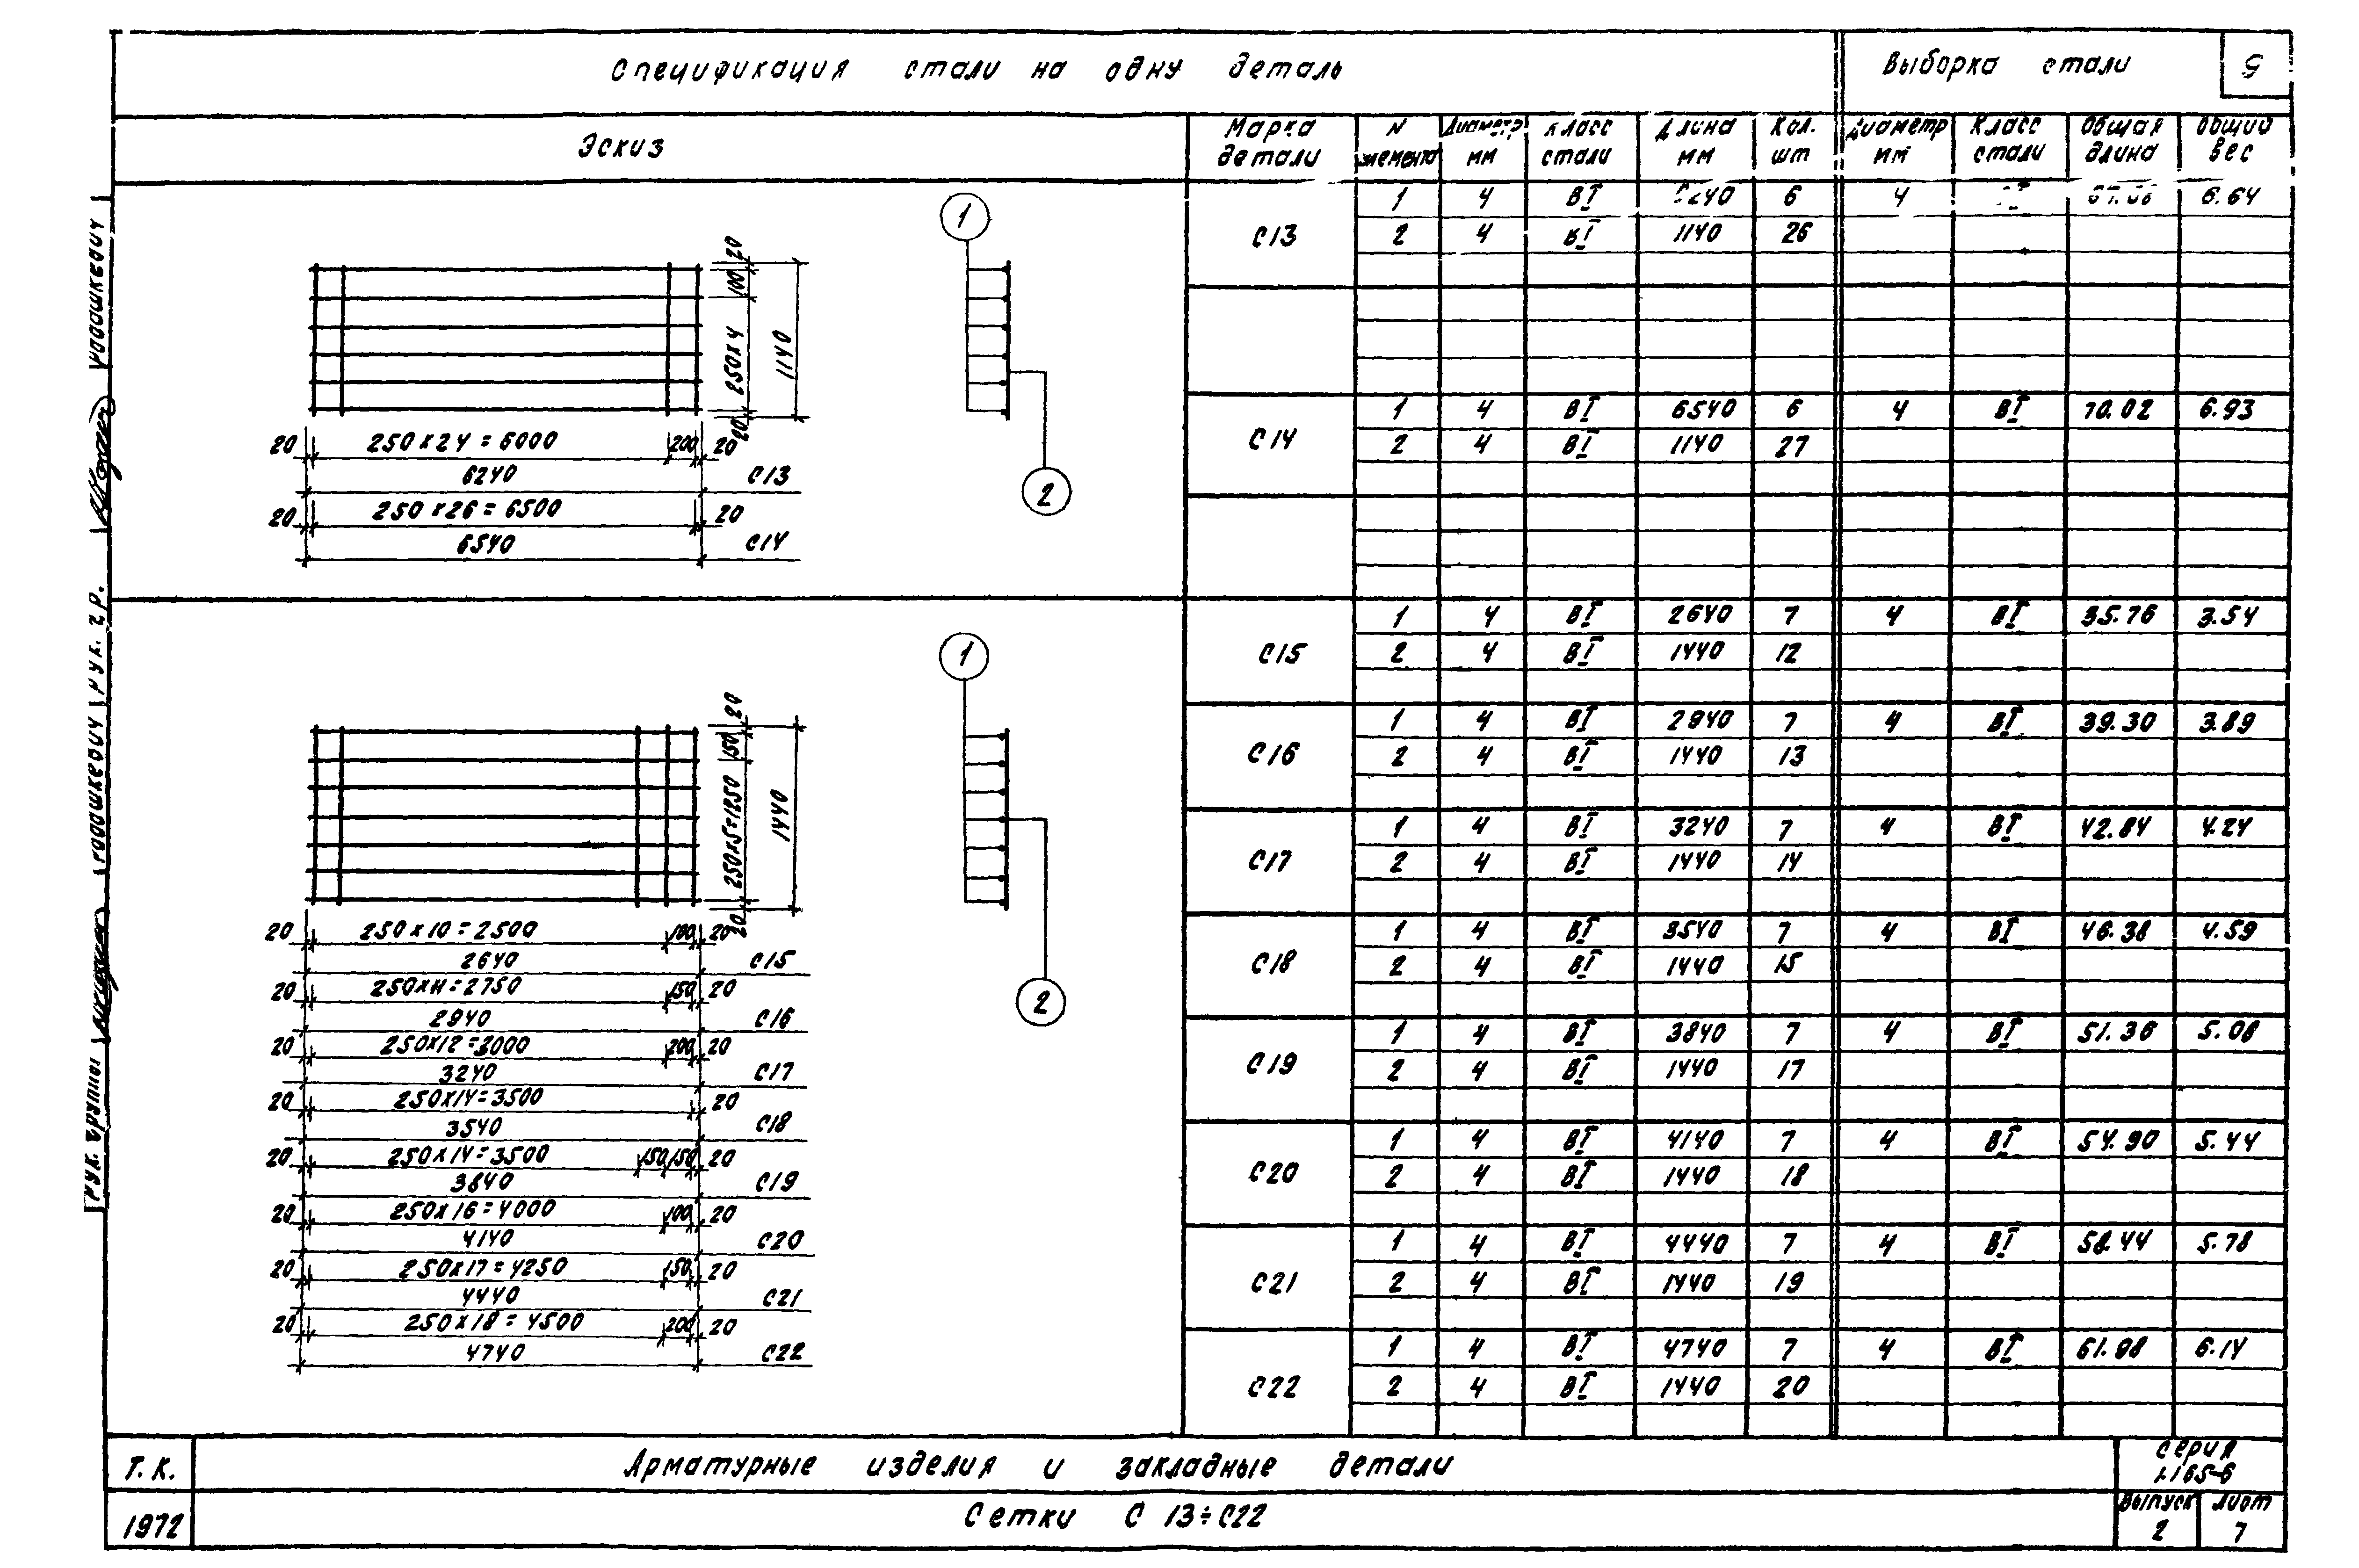 Спецификация стали на одну деталь
Выборка стали
Эскиз
Марка детали | N элемента | Диаметр мм | Класс стали | Длина мм | Кол. шт | Диаметр мм | Класс стали | Общая длина | Общий вес
С13 | 1 | 4 | ВI | 6 | 4 | 6.64
2 | 4 | ВI | 1140 | 26
С14 | 1 | 4 | ВI | 6540 | 6 | 4 | ВI | 70.02 | 6.93
2 | 4 | ВI | 1140 | 27
С15 | 1 | 4 | ВI | 2640 | 7 | 4 | ВI | 35.76 | 3.54
2 | 4 | ВI | 1440 | 12
С16 | 1 | 4 | ВI | 2940 | 7 | 4 | ВI | 39.30 | 3.89
2 | 4 | ВI | 1440 | 13
С17 | 1 | 4 | ВI | 3240 | 7 | 4 | ВI | 42.84 | 4.24
2 | 4 | ВI | 1440 | 14
С18 | 1 | 4 | ВI | 3540 | 7 | 4 | ВI | 46.38 | 4.59
2 | 4 | ВI | 1440 | 15
С19 | 1 | 4 | ВI | 3840 | 7 | 4 | ВI | 51.36 | 5.08
2 | 4 | ВI | 1440 | 17
С20 | 1 | 4 | ВI | 4140 | 7 | 4 | ВI | 54.90 | 5.44
2 | 4 | ВI | 1440 | 18
С21 | 1 | 4 | ВI | 4440 | 7 | 4 | ВI | 58.44 | 5.78
2 | 4 | ВI | 1440 | 19
С22 | 1 | 4 | ВI | 4740 | 7 | 4 | ВI | 61.98 | 6.14
2 | 4 | ВI | 1440 | 20
1
2
20
100
250х4
20
1140
20 250х24=6000 200 20
6240 С13
20 250х26=6500 20
6540 С14
1
2
20
150
250х5=1250
20
1440
20 250х10=2500 100 20
2640 С15
20 250х11=2750 150 20
2940 С16
20 250х12=3000 200 20
3240 С17
20 250х14=3500 20
3540 С18
20 250х14=3500 150 150 20
3840 С19
20 250х16=4000 100 20
4140 С20
20 250х17=4250 150 20
4440 С21
20 250х18=4500 200 20
4740 С22
Рук. группы
Рук. гр.
Т.К.
1972
Арматурные изделия и закладные детали
Сетки С 13÷С22
Серия
1.165-6
Выпуск
2
Лист
7